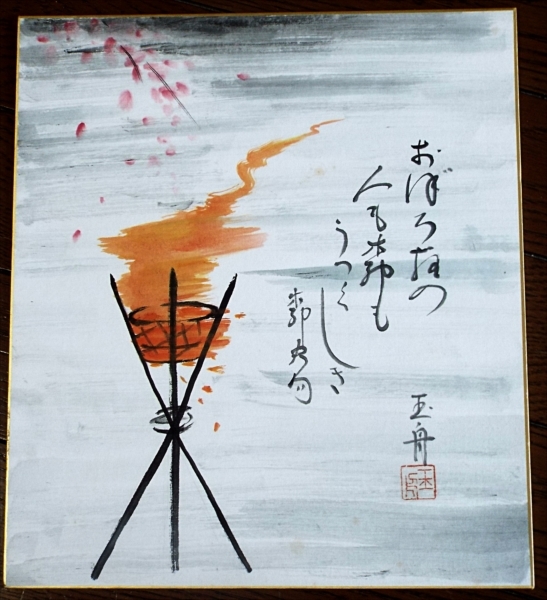 おぼろ夜の
人も都も
うつくしき
玉舟